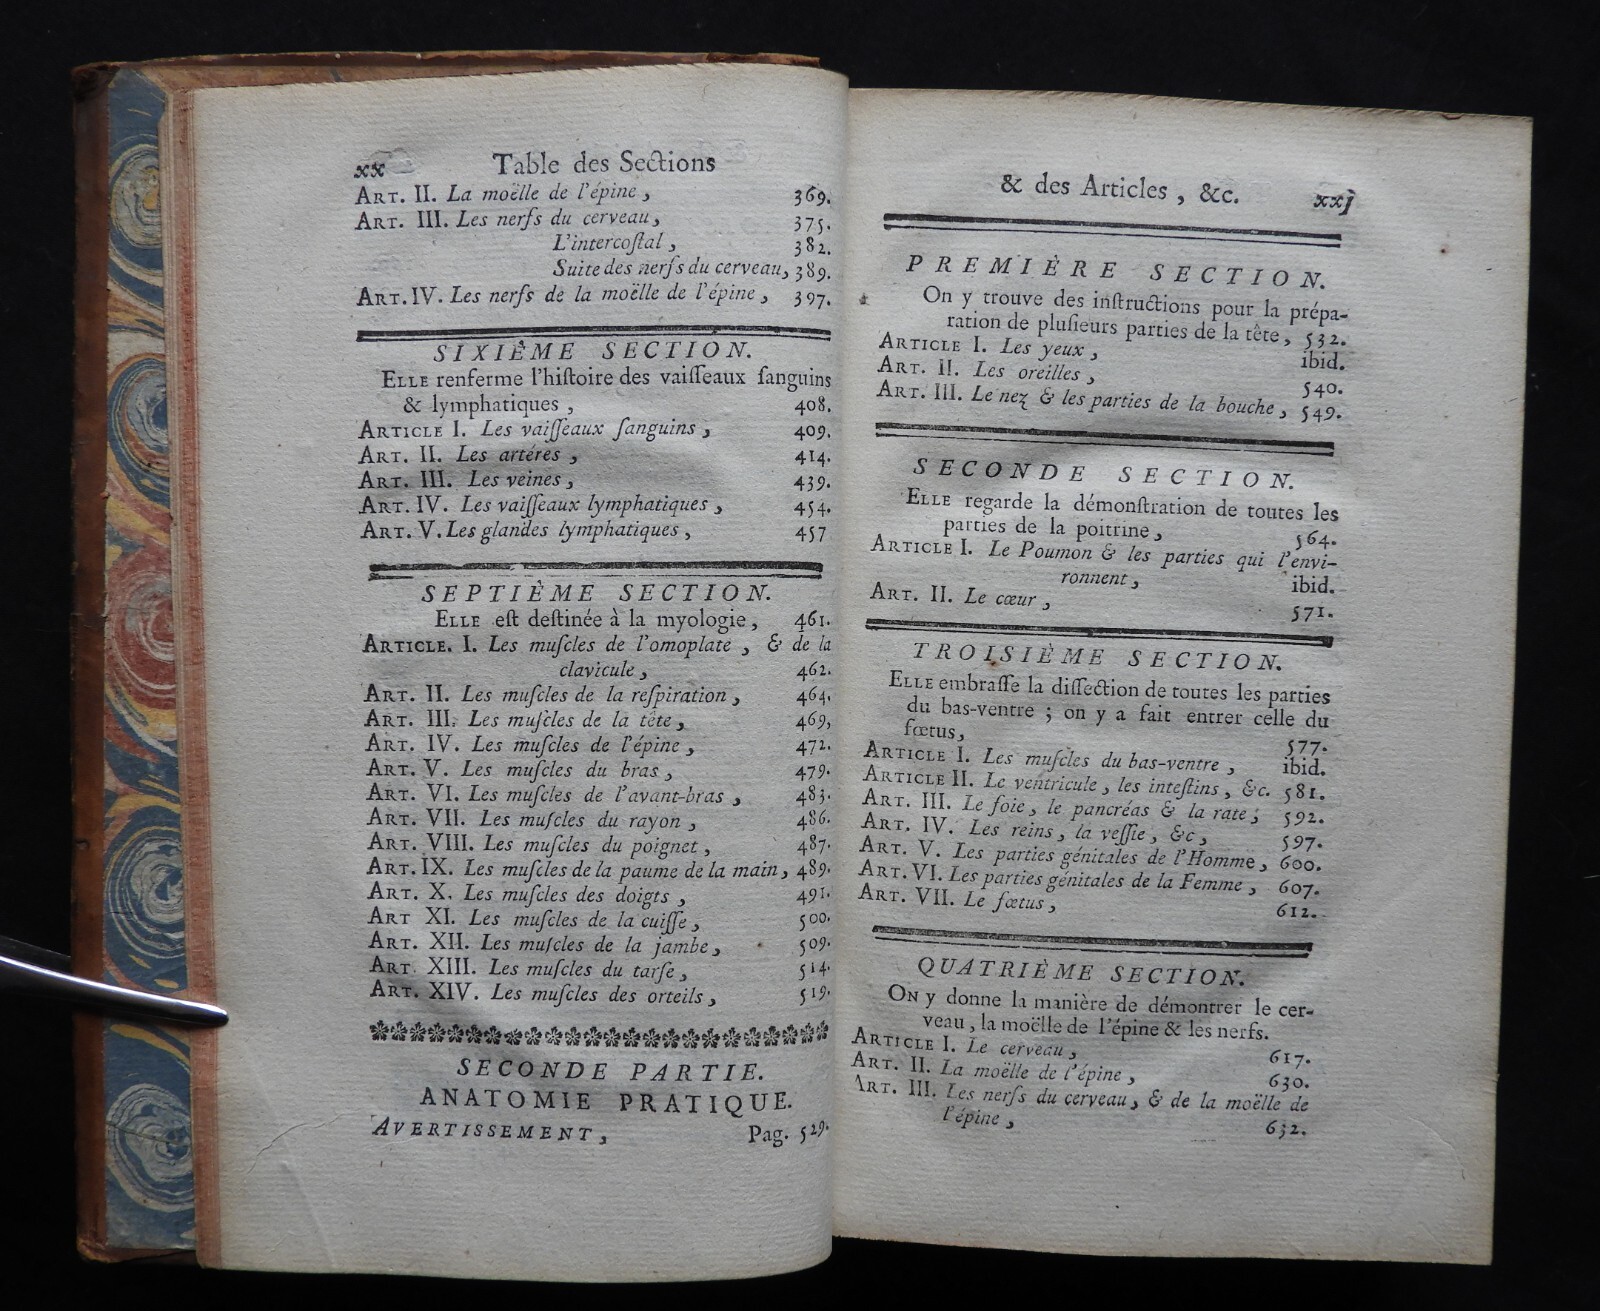 xx Table des Sections
ART. II. La moëlle de l'épine, 369.
ART. III. Les nerfs du cerveau, 375.
L'intercoſtal, 382.
Suite des nerfs du cerveau, 389.
ART. IV. Les nerfs de la moëlle de l'épine, 397.
SIXIÈME SECTION.
ELLE renferme l'hiſtoire des vaiſſeaux ſanguins
& lymphatiques, 408.
ARTICLE I. Les vaiſſeaux ſanguins, 409.
ART. II. Les artéres, 414.
ART. III. Les veines, 439.
ART. IV. Les vaiſſeaux lymphatiques, 454.
ART. V. Les glandes lymphatiques, 457
SEPTIÈME SECTION.
ELLE eſt deſtinée à la myologie, 461.
ARTICLE. I. Les muſcles de l'omoplate, & de la
clavicule, 462.
ART. II. Les muſcles de la reſpiration, 464.
ART. III. Les muſcles de la tête, 469,
ART. IV. Les muſcles de l'épine, 472.
ART. V. Les muſcles du bras, 479.
ART. VI. Les muſcles de l'avant-bras, 483.
ART. VII. Les muſcles du rayon, 486.
ART. VIII. Les muſcles du poignet, 487.
ART. IX. Les muſcles de la paume de la main, 489.
ART. X. Les muſcles des doigts, 491.
ART XI. Les muſcles de la cuiſſe, 500.
ART. XII. Les muſcles de la jambe, 509.
ART. XIII. Les muſcles du tarſe, 514.
ART. XIV. Les muſcles des orteils, 519.
SECONDE PARTIE.
ANATOMIE PRATIQUE.
AVERTISSEMENT, Pag. 529.
& des Articles, &c. xxj
PREMIÈRE SECTION.
On y trouve des inſtructions pour la prépa-
ration de pluſieurs parties de la tête, 532.
ARTICLE I. Les yeux, ibid.
ART. II. Les oreilles, 540.
ART. III. Le nez & les parties de la bouche, 549.
SECONDE SECTION.
ELLE regarde la démonſtration de toutes les
parties de la poitrine, 564.
ARTICLE I. Le Poumon & les parties qui l'envi-
ronnent, ibid.
ART. II. Le cœur, 571.
TROISIÈME SECTION.
ELLE embraſſe la diſſection de toutes les parties
du bas-ventre; on y a fait entrer celle du
fœtus, 577.
ARTICLE I. Les muſcles du bas-ventre, ibid.
ARTICLE II. Le ventricule, les inteſtins, &c. 581.
ART. III. Le foie, le pancréas & la rate; 592.
ART. IV. Les reins, la veſſie, &c, 597.
ART. V. Les parties génitales de l'Homme, 600.
ART. VI. Les parties génitales de la Femme, 607.
ART. VII. Le fœtus, 612.
QUATRIÈME SECTION.
ON y donne la manière de démontrer le cer-
veau, la moëlle de l'épine & les nerfs.
ARTICLE I. Le cerveau, 617.
ART. II. La moëlle de l'épine, 630.
ART. III. Les nerfs du cerveau, & de la moëlle de
l'épine, 632.